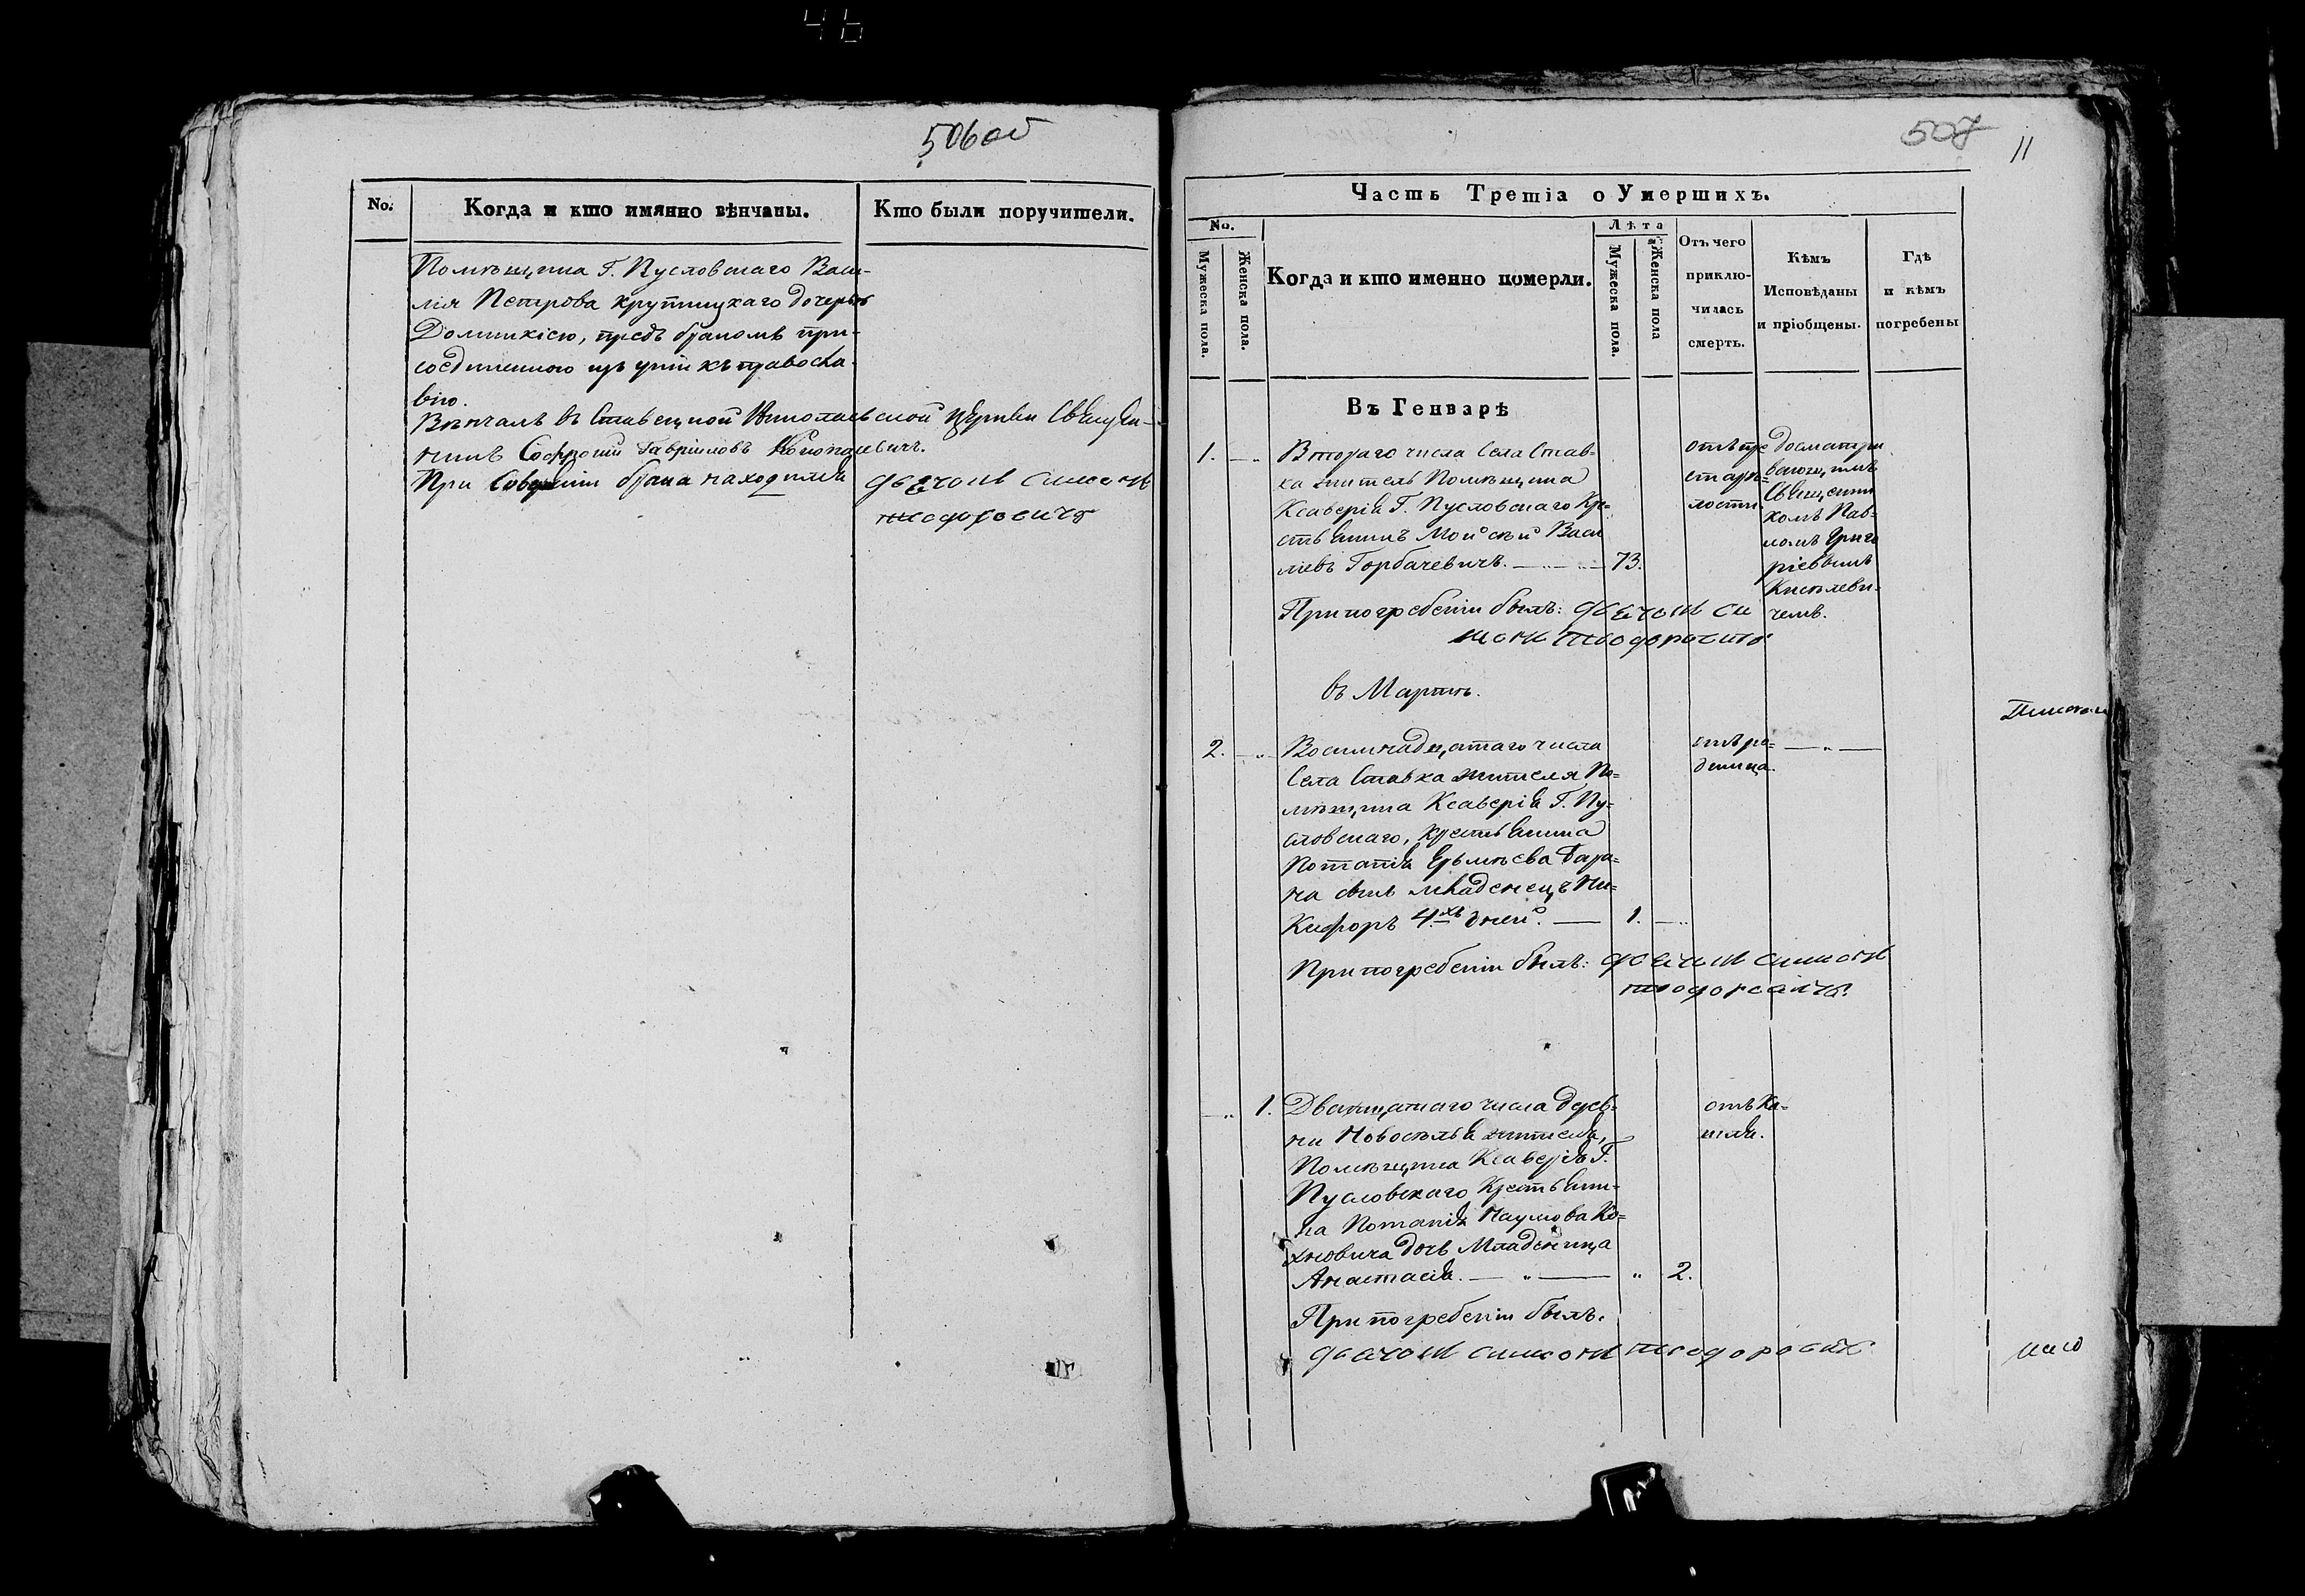 506 об
No.
Когда и кто имянно вѣнчаны.
Кто были поручители.
Помѣщика Г. Пусловскаго Васи-
лія Петрова Крутицкаго дочерью
Доминикіею, предъ бракомъ при-
соединенною изъ уніи къ правосла-
вію.
Вѣнчалъ въ Ставецкой Николаевской церкви Священ-
никъ Софроній Гавріиловъ
При Совершеніи брака находился
дьячокъ Симонъ
Теодоровичъ
507
11
Часть Третіа о Умершихъ.
No.
Мужеска пола.
Женска пола.
Когда и кто именно померли.
Лѣта
Мужеска пола.
Женска пола
Отъ чего
приклю-
чилась
смерть.
Кѣмъ
Исповѣданы
и пріобщены.
Гдѣ
и кѣмъ
погребены
Въ Генварѣ
1.
Втораго числа Села Став-
ка житель Помѣщика
Ксаверія Г. Пусловскаго Кре-
стьянинъ Мойсей Васи
ліевъ Горбачевичъ.
73.
отъ пре
старѣ-
лости.
досматри
вающимъ
Священни
комъ Пав-
ломъ Григо
ріевымъ
чемъ.
При погребеніи былъ: дьячокъ Си
монъ Теодоровичъ
въ Мартѣ.
2.
Восимнадцатаго числа
Села Ставка жителя По-
мѣщика Ксаверія Г. Пу-
словскаго, крестьянина
Потапія Ерьмѣева Бара-
на сынъ младенецъ Ни-
кифоръ 4.хъ дней.
1.
отъ ро-
димца.
При погребеніи былъ: дьячокъ Симонъ
Теодоровичъ.
1.
Дватцатаго числа дерев-
ни Новоселья жителя,
Помѣщика Ксаверія Г.
Пусловскаго Крестьяни-
на Потапія Наумова Ко-
хновича дочь Младеница
Анастасія.
2.
отъ Ка-
шля.
При погребеніи былъ.
дьячокъ Симонъ Теодоровичъ